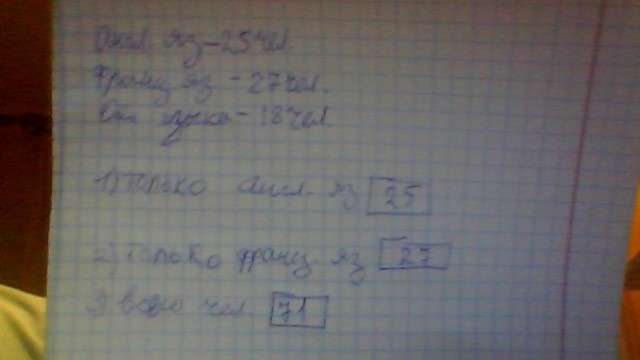 Англ. яз - 25 чел.
Франц. яз - 27 чел.
- 18 чел
1) только англ. яз 25
2) только франц. яз 27
3) всего чел. 71